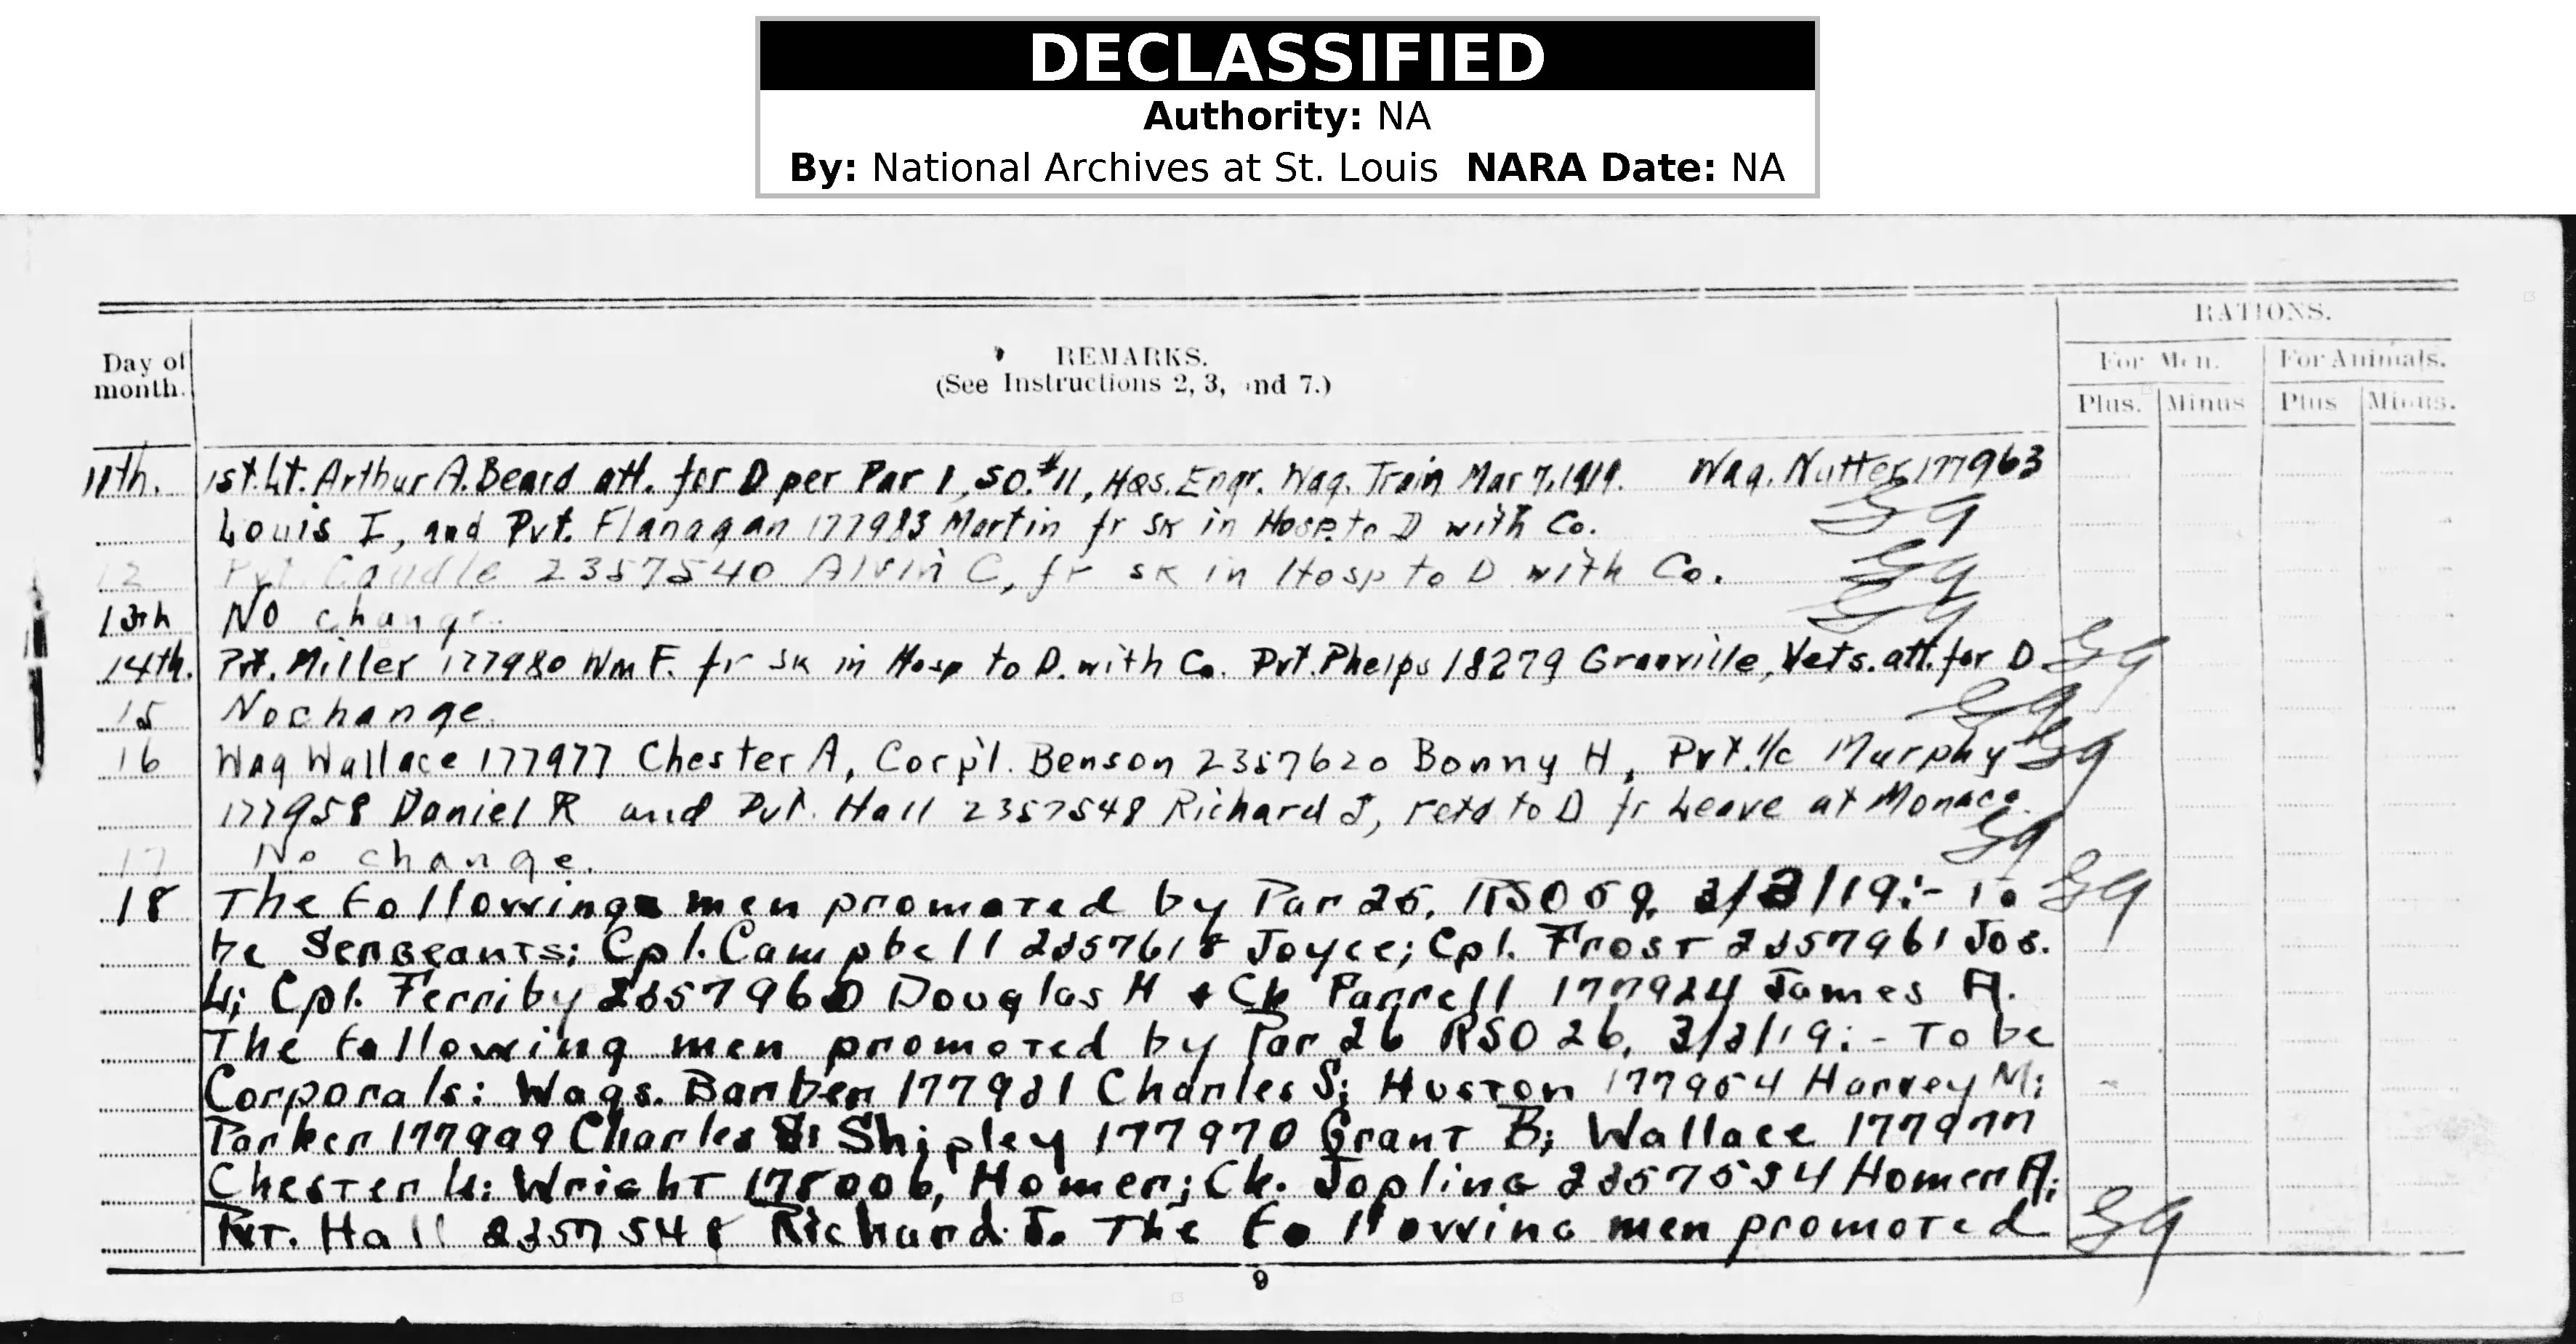 DECLASSIFIED
Authority: NA
By: National Archives at St. Louis NARA Date: NA
RATIONS.
Day of month.
REMARKS.
(See Instructions 2, 3, and 7.)
For Men.
For Animals.
Plus. Minus Plus Minus.
11th. 1st. Lt. Arthur A. Beard att. for D per Par 1, SO. #11, Hqs. Engr. Wag. Train Mar 7, 1919. Wag. Nutter 177963
Louis I, and Pvt. Flanagan 177983 Martin fr sk in Hosp. to D with Co.
12 Pvt. Caudle 2357540 Alvin C, fr sk in Hosp to D with Co.
13th No change.
14th. Pvt. Miller 177980 Wm F. fr sk in Hosp to D. with Co. Pvt. Phelps 18279 Granville, Vets. att. for D
15 No change.
16 Wag Wallace 177977 Chester A, Corp'l. Benson 2357620 Bonny H, Pvt. 1/c Murphy
177958 Daniel R and Pvt. Hall 2357548 Richard J, retd to D fr Leave at Monaco.
17 No change.
18 The following men promoted by Par 25, RSO 59, 3/3/19:- To
be Sergeants; Cpl. Campbell 2357618 Joyce; Cpl. Frost 2357961 Jos.
L; Cpl. Ferriby 2357960 Douglas H + Ck Parrell 177924 James A.
The following men promoted by Par 26 RSO 26, 3/3/19:- To be
Corporals: Wags. Barber 177921 Charles S; Huston 177954 Harvey M;
Parker 177999 Charles Shipley 177970 Grant B; Wallace 177977
Chester W: Wright 178006, Homer; Ck. Jopling 2357534 Homer A;
Pvt. Hall 2357548 Richard J. The following men promoted
9